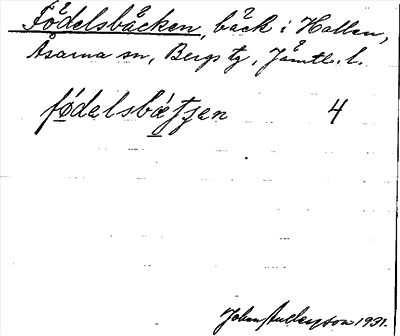 Födelsbäcken, bäck i Hallen,
Åsarna sn, Bergs tg, Jämtl. l.
födelsbætjen 4
Johan Anderson 1931.